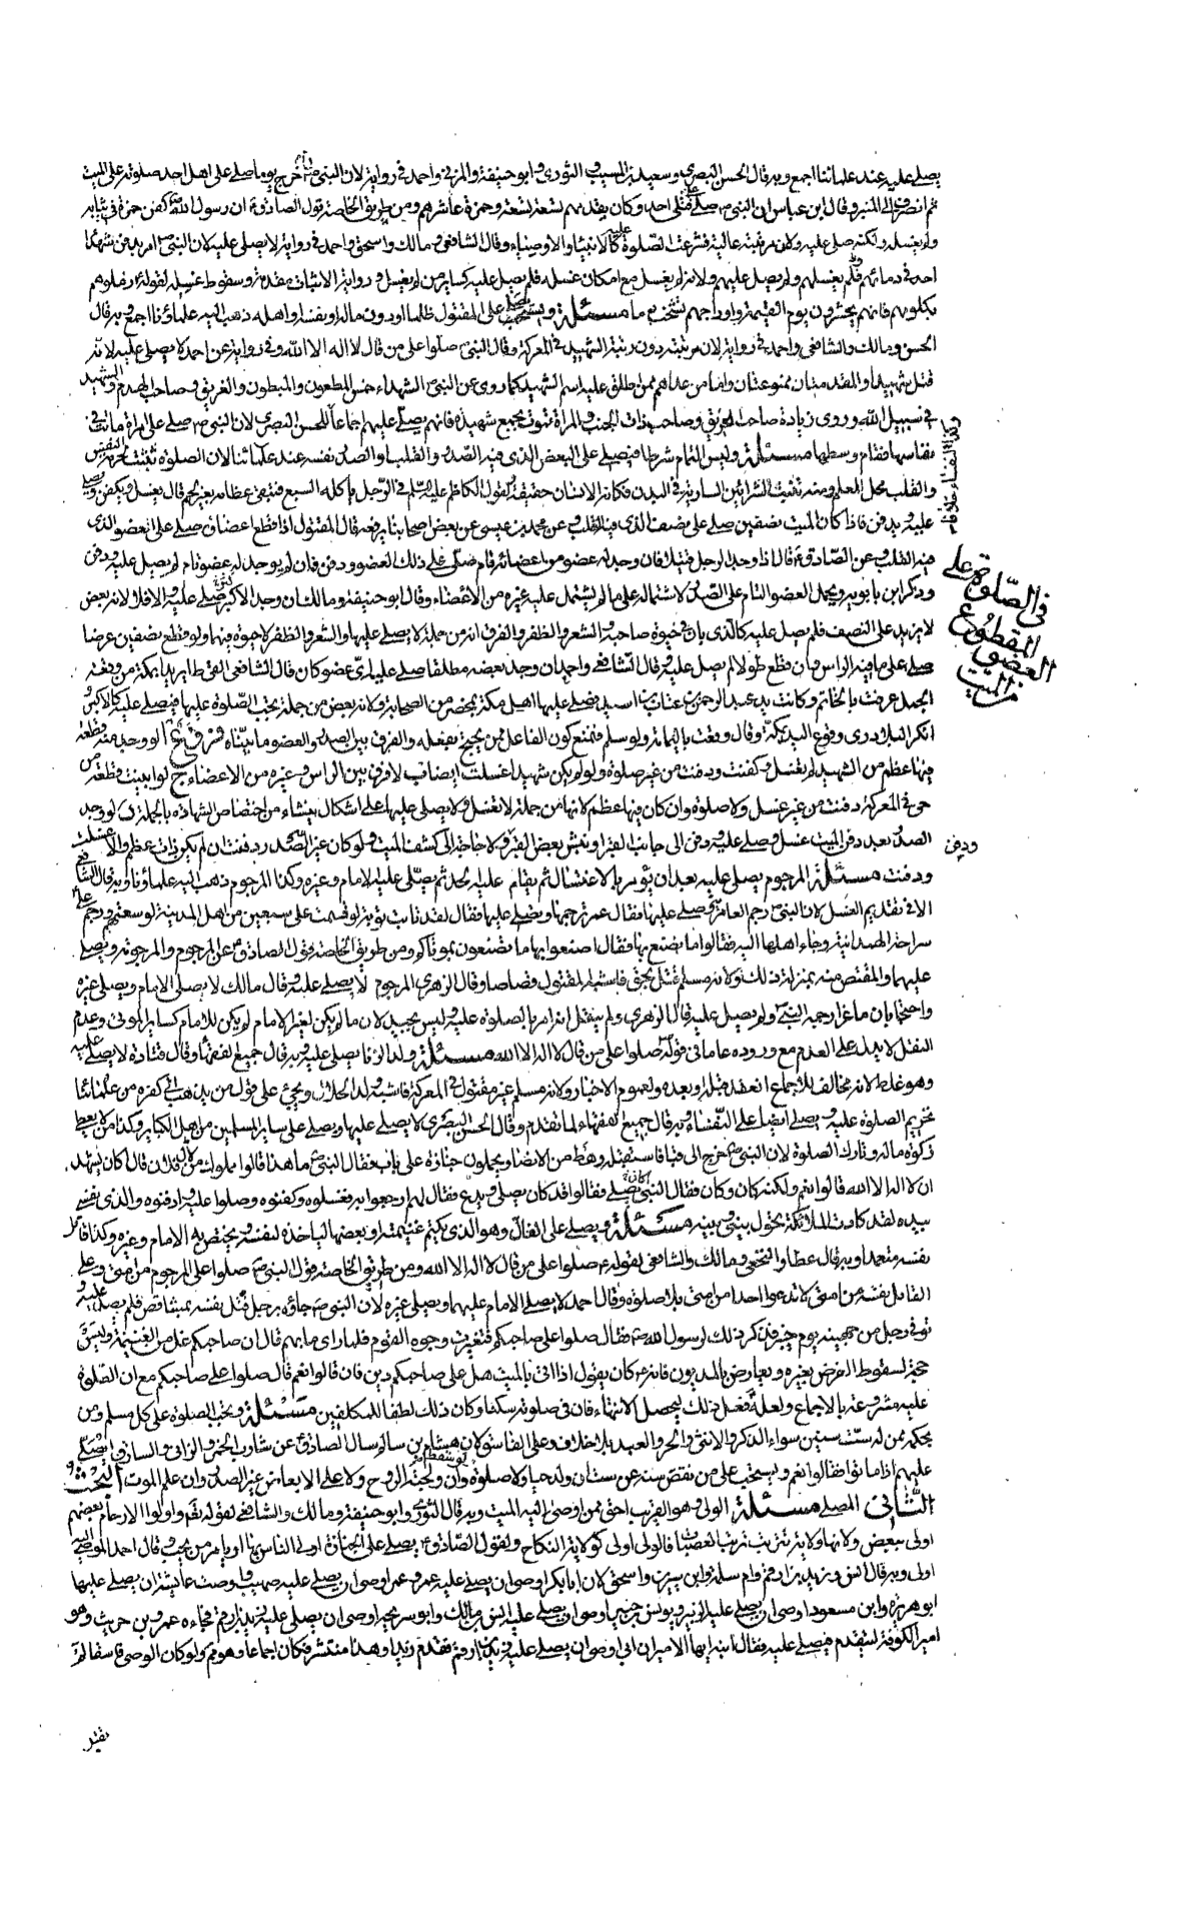 يصلى عليه عند علمائنا اجمع وبه قال الحسن البصرى وسعيد بن المسيب والثورى وابو حنيفة والمزنى واحمد فى رواية لان النبى ص خرج يوما صلى على اهل احد صلوته على الميت
ثم انصرف الى المنبر وقال ابن عباس ان النبى ص صلى على قتلى احد وكان يقدمهم تسعة تسعة وحمزة عاشرهم ومن طريق الخاصة قول الصادق ع ان رسول الله ص كفن حمزة فى ثيابه
ولم يغسله ولكنه صلى عليه ولان مرتبته عالية فشرعت الصلوة عليه كالانبياء والاوصياء وقال الشافعى ومالك واسحق واحمد فى رواية لا يصلى عليه لان النبى ص امر بدفن شهداء
احد فى دمائهم ولم يغسلهم ولم يصل عليهم ولانه لم يغسل مع امكان غسله فلم يصل عليه كساير من لم يغسل ورواية الاثبات مقدمة وسقوط غسله لقوله ع زملوهم
بكلومهم فانهم يحشرون يوم القيمة واوداجهم تشخب دما مسئلة ويصلى على المقتول ظلما او دون ماله او نفسه او اهله ذهب اليه علماؤنا اجمع وبه قال
الحسن ومالك والشافعى واحمد فى رواية لان مرتبته دون مرتبة الشهيد فى المعركة وقال النبى ص صلوا على من قال لا اله الا الله وفى رواية عن احمد لا يصلى عليه لانه
قتل شهيدا والمقدمتان ممنوعتان واما من عداهم ممن اطلق عليه اسم الشهيد كما روى عن النبى ص الشهداء خمس المطعون والمبطون والغريق وصاحب الهدم والشهيد
فى سبيل الله وروى زيادة صاحب الحريق وصاحب ذات الجنب والمراة تموت بجمع شهيدة فانهم يصلى عليهم اجماعا الا الحسن البصرى لان النبى ص صلى على امراة ماتت فى
نفاسها فقام وسطها مسئلة وليس التمام شرطا فيصلى على البعض الذى فيه الصدر والقلب او الصدر نفسه عند علمائنا لان الصلوة ثبتت لحرمة النفس
والقلب محل العلم ومنه تنبث الشرائين السارية فى البدن فكانه الانسان حقيقة ولقول الكاظم عليه السلم فى الرجل ياكله السبع فتبقى عظامه بغير لحم قال يغسل ويكفن ويصلى
عليه ويدفن فاذا كان الميت نصفين صلى على نصف الذى فيه القلب وعن محمد بن عيسى عن بعض اصحابنا يرفعه قال المقتول اذا قطع اعضائ صلى على العضو الذى
فيه القلب وعن الصادق ع قال اذا وجد الرجل قتيلا فان وجد له عضو من اعضائه تام صلى على ذلك العضو ودفن فان لم يوجد له عضو تام لم يصل عليه ودفن
وذكر ابن بابويه ويحمل العضو التام على الصدر لاشتماله على ما لم يشتمل عليه غيره من الاعضاء وقال ابو حنيفة ومالك ان وجد الاكثر صلى عليه والا فلا لانه بعض
لا يزيد على النصف فلم يصل عليه كالذى بان فى حيوة صاحبه والشعر والظفر والفرق انه من جملة لا يصلى عليها والشعر والظفر لا حيوة فيها ولو قطع نصفين عرضا
صلى على ما فيه الراس وان قطع طولا لم يصل عليه وقال الشافعى واحمد ان وجد بعضه مطلقا صلى عليه اى عضو كان قال الشافعى القى طاير يدا بمكة من وقعة
الجمل عرفت بالخاتم وكانت يد عبد الرحمن بن عتاب بن اسيد فصلى عليها اهل مكة بمحضر من الصحابة ولانه بعض من جملة يجب الصلوة عليها فيصلى عليه كالاكثر و
انكر البلاذرى وقوع اليد بمكة وقال وقعت باليمامة ولو سلم فنمنع كون الفاعل ممن يحتج بفعله والفرق بين الصدر والعضو ما بيناه فروع ا لو وجد منه قطعة
فيها عظم من الشهيد لم يغسل وكفنت ودفنت من غير صلوة ولو لم يكن شهيدا غسلت ايضا ب لا فرق بين الراس وغيره من الاعضاء ج لو ابينت قطعة من
حى فى المعركة دفنت من غير غسل ولا صلوة وان كان فيها عظم لانها من جملة لا تغسل ولا يصلى عليها على اشكال ينشاء من اختصاص الشهادة بالجملة د لو وجد
الصدر بعد دفن الميت غسل وصلى عليه ودفن الى جانب القبر او نبش بعض القبر ولا حاجة الى كشف الميت ولو كان غير الصدر دفنت ان لم يكن ذات عظم والا غسلت
ودفنت مسئلة المرجوم يصلى عليه بعد ان يؤمر بالاغتسال ثم يقام عليه الحد ثم يصلى عليه الامام وغيره وكذا المرجومة ذهب اليه علماؤنا وبه قال الشافعى
الا فى تقديم الغسل لان النبى ص رجم العامرية وصلى عليها فقال عمر ترجمها وتصلى عليها فقال لقد تابت توبة لو قسمت على سبعين من اهل المدينة لوسعتهم ورجم على ع
سراحة الهمدانية وجاء اهلها اليه فقالوا ما نصنع بها فقال اصنعوا بها ما تصنعون بموتاكم ومن طريق الخاصة قول الصادق ع عن المرجوم والمرجومة ويصلى
عليهما والمقتص منه بمنزلة ذلك ولانه مسلم قتل بحق فاشبه المقتول قصاصا وقال الزهرى المرجوم لا يصلى عليه وقال مالك لا يصلى الامام ويصلى غيره
واحتجا بان ماعزا رجمه النبى ص ولم يصل عليه قال الزهرى ولم ينقل انه امر بالصلوة عليه وليس بجيد لان ما لم يكن لغير الامام لم يكن للامام كساير الموتى وعدم
النقل لا يدل على العدم مع وروده عاما فى قوله ص صلوا على من قال لا اله الا الله مسئلة ولد الزنا يصلى عليه وبه قال جميع الفقهاء وقال قتادة لا يصلى عليه
وهو غلط لانه مخالف للاجماع انعقد قبله وبعده ولعموم الاخبار ولانه مسلم غير مقتول فى المعركة فاشبه ولد الحلال ويجئ على قول من يذهب الى كفره من علمائنا
تحريم الصلوة عليه ويصلى ايضا على النفساء وبه قال جميع الفقهاء لما تقدم وقال الحسن البصرى لا يصلى عليها ويصلى على ساير المسلمين من اهل الكباير وكذا من لا يعط
زكوة ماله وتارك الصلوة لان النبى ص خرج الى قبا فاستقبله رهط من الانصار يحملون جنازة على باب فقال النبى ص ما هذا قالوا مملوك لال فلان قال كان يشهد
ان لا اله الا الله قالوا نعم ولكنه كان وكان فقال النبى اكان يصلى فقالوا قد كان يصلى ويدع فقال لهم ارجعوا به فغسلوه وكفنوه وصلوا عليه وادفنوه والذى نفسى
بيده لقد كادت الملائكة تحول بينى وبينه مسئلة ويصلى على الغال وهو الذى يكتم غنيمته او بعضها ليأخذه لنفسه ويختص به الامام وغيره وكذا قاتل
نفسه متعمدا وبه قال عطا والنخعى ومالك والشافعى لقوله ع صلوا على من قال لا اله الا الله ومن طريق الخاصة قول النبى ص صلوا على المرجوم من امتى وعلى
القاتل نفسه من امتى لا تدعوا احدا من امتى بلا صلوة وقال احمد لا يصلى الامام عليهما ويصلى غيره لان النبى ص جاؤه برجل قتل نفسه بمشاقص فلم يصل عليه و
توفى رجل من جهينة يوم خيبر فذكر ذلك لرسول الله ص فقال صلوا على صاحبكم فتغيرت وجوه القوم فلما راى ما بهم قال ان صاحبكم غل من الغنيمة وليس
حجة لسقوط الفرض بغيره ويعارض بالمديون فانه ع كان يقول اذا اتى بالميت هل على صاحبكم دين فان قالوا نعم قال صلوا على صاحبكم مع ان الصلوة
عليه مشروعة بالاجماع ولعله ع فعل ذلك ليحصل الانتهاء فان فى صلوته سكنا وكان ذلك لطفا للمكلفين مسئلة ويجب الصلوة على كل مسلم ومن
بحكمه ممن له ست سنين سواء الذكر والانثى والحر والعبد بلا خلاف وعلى الفاسق لان هشام بن سالم سال الصادق ع عن شارب الخمر والزانى والسارق ايصلى
عليهم اذا ماتوا فقال نعم ويستحب على من نقص سنه عن ست ان ولد حيا ولا صلوة لو سقط وان ولجته الروح ولا على الابعاض غير الصدر وان علم الموت البحث
الثانى المصلى مسئلة الولى وهو القريب احق ممن اوصى اليه الميت وبه قال الثورى وابو حنيفة ومالك والشافعى لقوله تعالى واولوا الارحام بعضهم
اولى ببعض ولانها ولاية تترتب ترتب العصبات فالولى اولى كولاية النكاح ولقول الصادق ع يصلى على الجنازة اولى الناس بها او يامر من يحب وقال احمد الموصى اليه
اولى وبه قال انس وزيد بن ارقم وام سلمة وابن سيرين واسحق لان ابا بكر اوصى ان يصلى عليه عمر وعمر اوصى ان يصلى عليه صهيب واوصت عائشة ان يصلى عليها
ابو هريرة وابن مسعود اوصى ان يصلى عليه الزبير ويونس بن جبير اوصى ان يصلى عليه انس بن مالك وابو سريحة اوصى ان يصلى عليه زيد بن ارقم فجاءه عمرو بن حريث وهو
امير الكوفة ليتقدم فيصلى عليه فقال ابنه ايها الامير ان ابى اوصى ان يصلى عليه زيد بن ارقم فقدم زيدا وهذا منتشر فكان اجماعا وهو مم ولو كان الوصى فاسقا لم
فى الصلوة على
المقطوع
العضو
من الميت
ودفن